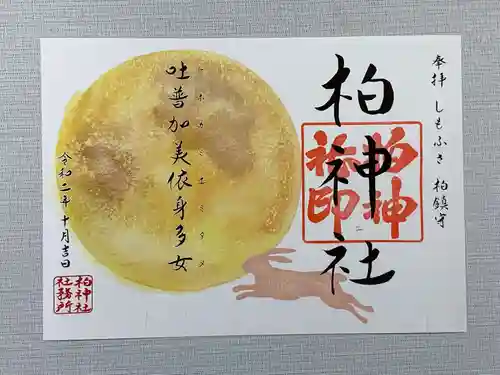 奉拝 しもふさ 柏鎮守
柏神社
柏神
社印
吐普加美依身多女
トホカミエミタメ
令和二年十月吉日
柏神社
社務所